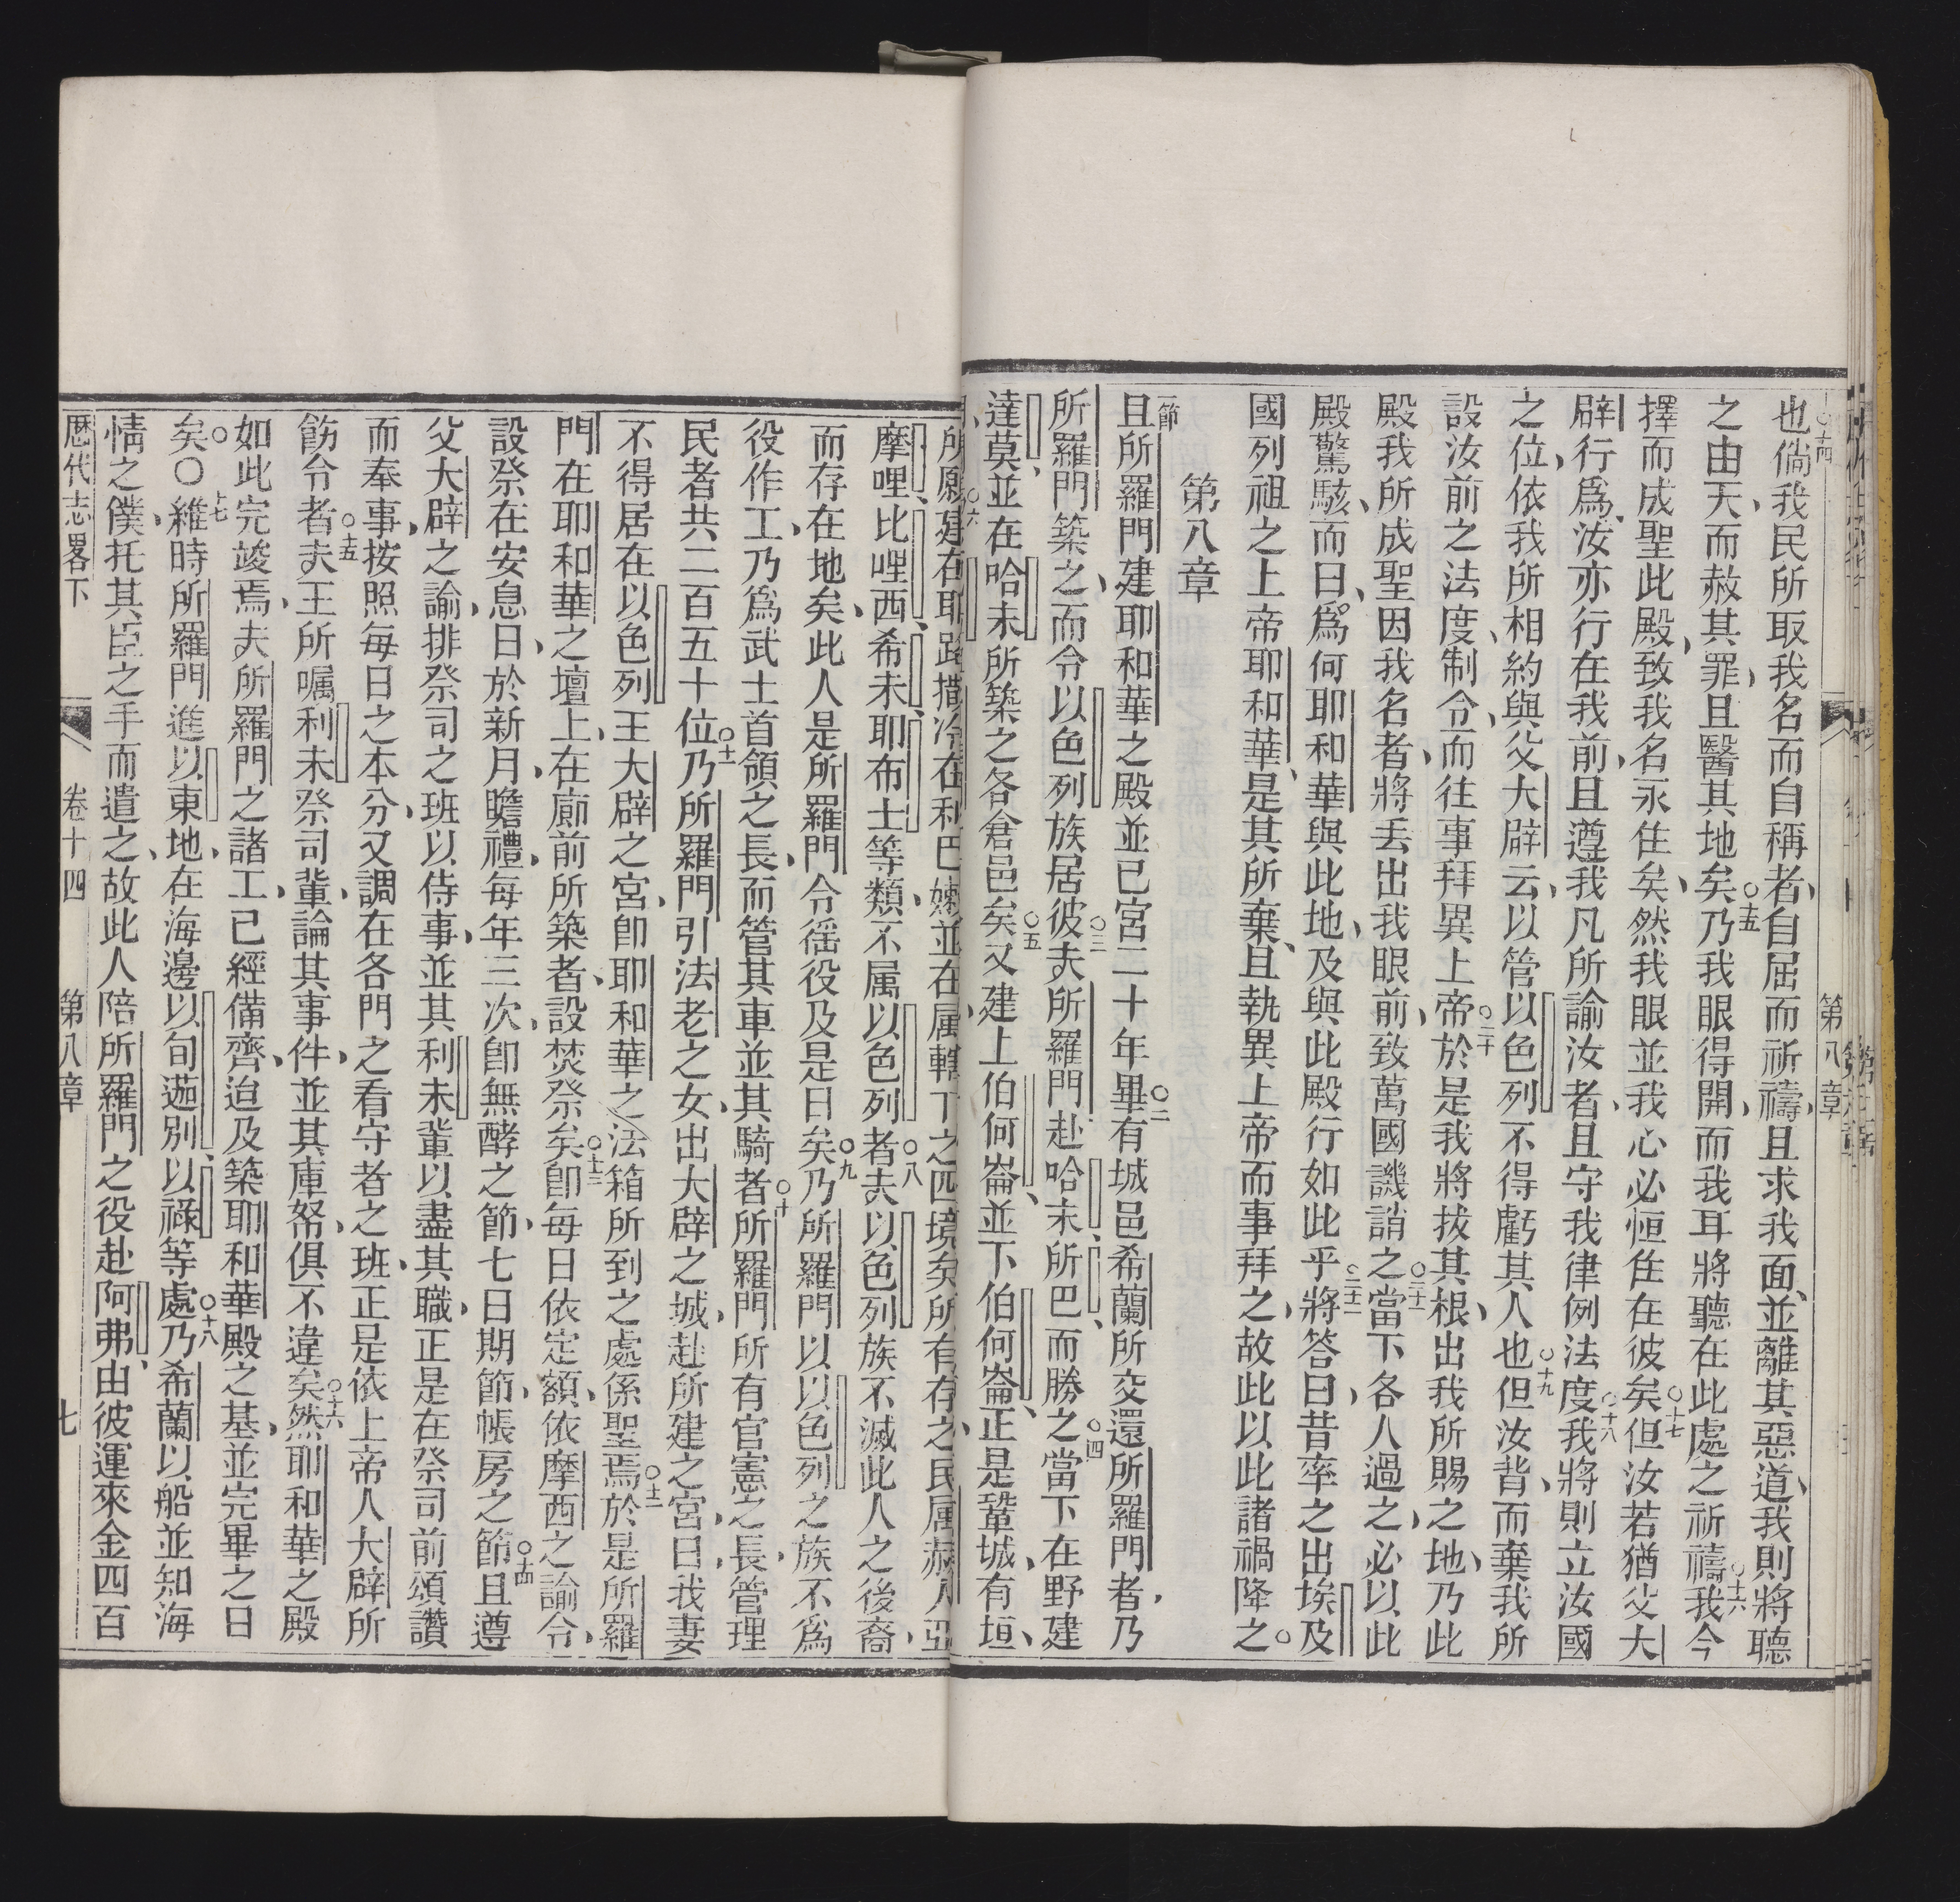 第八章
也倘我民所取我名而自稱者自屈而祈禱且求我面並離其惡道我則將聽
之由天而赦其罪且醫其地矣乃我眼得開而我耳將聽在此處之祈禱我今
擇而成聖此殿致我名永住矣然我眼並我心必恒住在彼矣但汝若猶父大
辟行爲汝亦行在我前且遵我凡所諭汝者且守我律例法度我將則立汝國
之位依我所相約與父大辟云以管以色列不得虧其人也但汝背而棄我所
設汝前之法度制令而往事拜異上帝於是我將拔其根出我所賜之地乃此
殿我所成聖因我名者將丢出我眼前致萬國譏誚之當下各人過之必以此
殿驚駭而曰爲何耶和華與此地及與此殿行如此乎將答曰昔率之出埃及
國列祖之上帝耶和華是其所棄且執異上帝而事拜之故此以此諸禍降之
第八章
一節且所羅門建耶和華之殿並已宮二十年畢有城邑希蘭所交還所羅門者乃
所羅門築之而令以色列族居彼夫所羅門赴哈末所巴而勝之當下在野建
達莫並在哈未所築之各倉邑矣又建上伯何崙並下伯何崙正是鞏城有垣
所愿建在耶路撒冷在利巴嫩並在属轄下之四境矣所有存之民属赫人亞
摩哩比哩西希未耶布士等類不属以色列者夫以色列族不滅此人之後裔
而存在地矣此人是所羅門令徭役及是日矣乃所羅門以以色列之族不爲
役作工乃爲武士首領之長而管其車並其騎者所羅門所有官憲之長管理
民者共二百五十位乃所羅門引法老之女出大辟之城赴所建之宮曰我妻
不得居在以色列王大辟之宮卽耶和華之法箱所到之處係聖焉於是所羅
門在耶和華之壇上在廊前所築者設焚祭矣卽每日依定額依摩西之諭令
設祭在安息日於新月瞻禮每年三次卽無酵之節七日期節帳房之節且遵
父大辟之諭排祭司之班以侍事並其利未輩以盡其職正是在祭司前頌讚
而奉事按照每日之本分又調在各門之看守者之班正是依上帝人大辟所
飭令者夫王所嘱利未祭司輩論其事件並其庫帑俱不違矣然耶和華之殿
如此完竣焉夫所羅門之諸工已經備齊迨及築耶和華殿之基並完畢之日
矣〇維時所羅門進以東地在海邊以旬迦別以祿等處乃希蘭以船並知海
情之僕托其臣之手而遣之故此人陪所羅門之役赴阿弗由彼運來金四百
歷代志畧下 卷十四 第八章 七